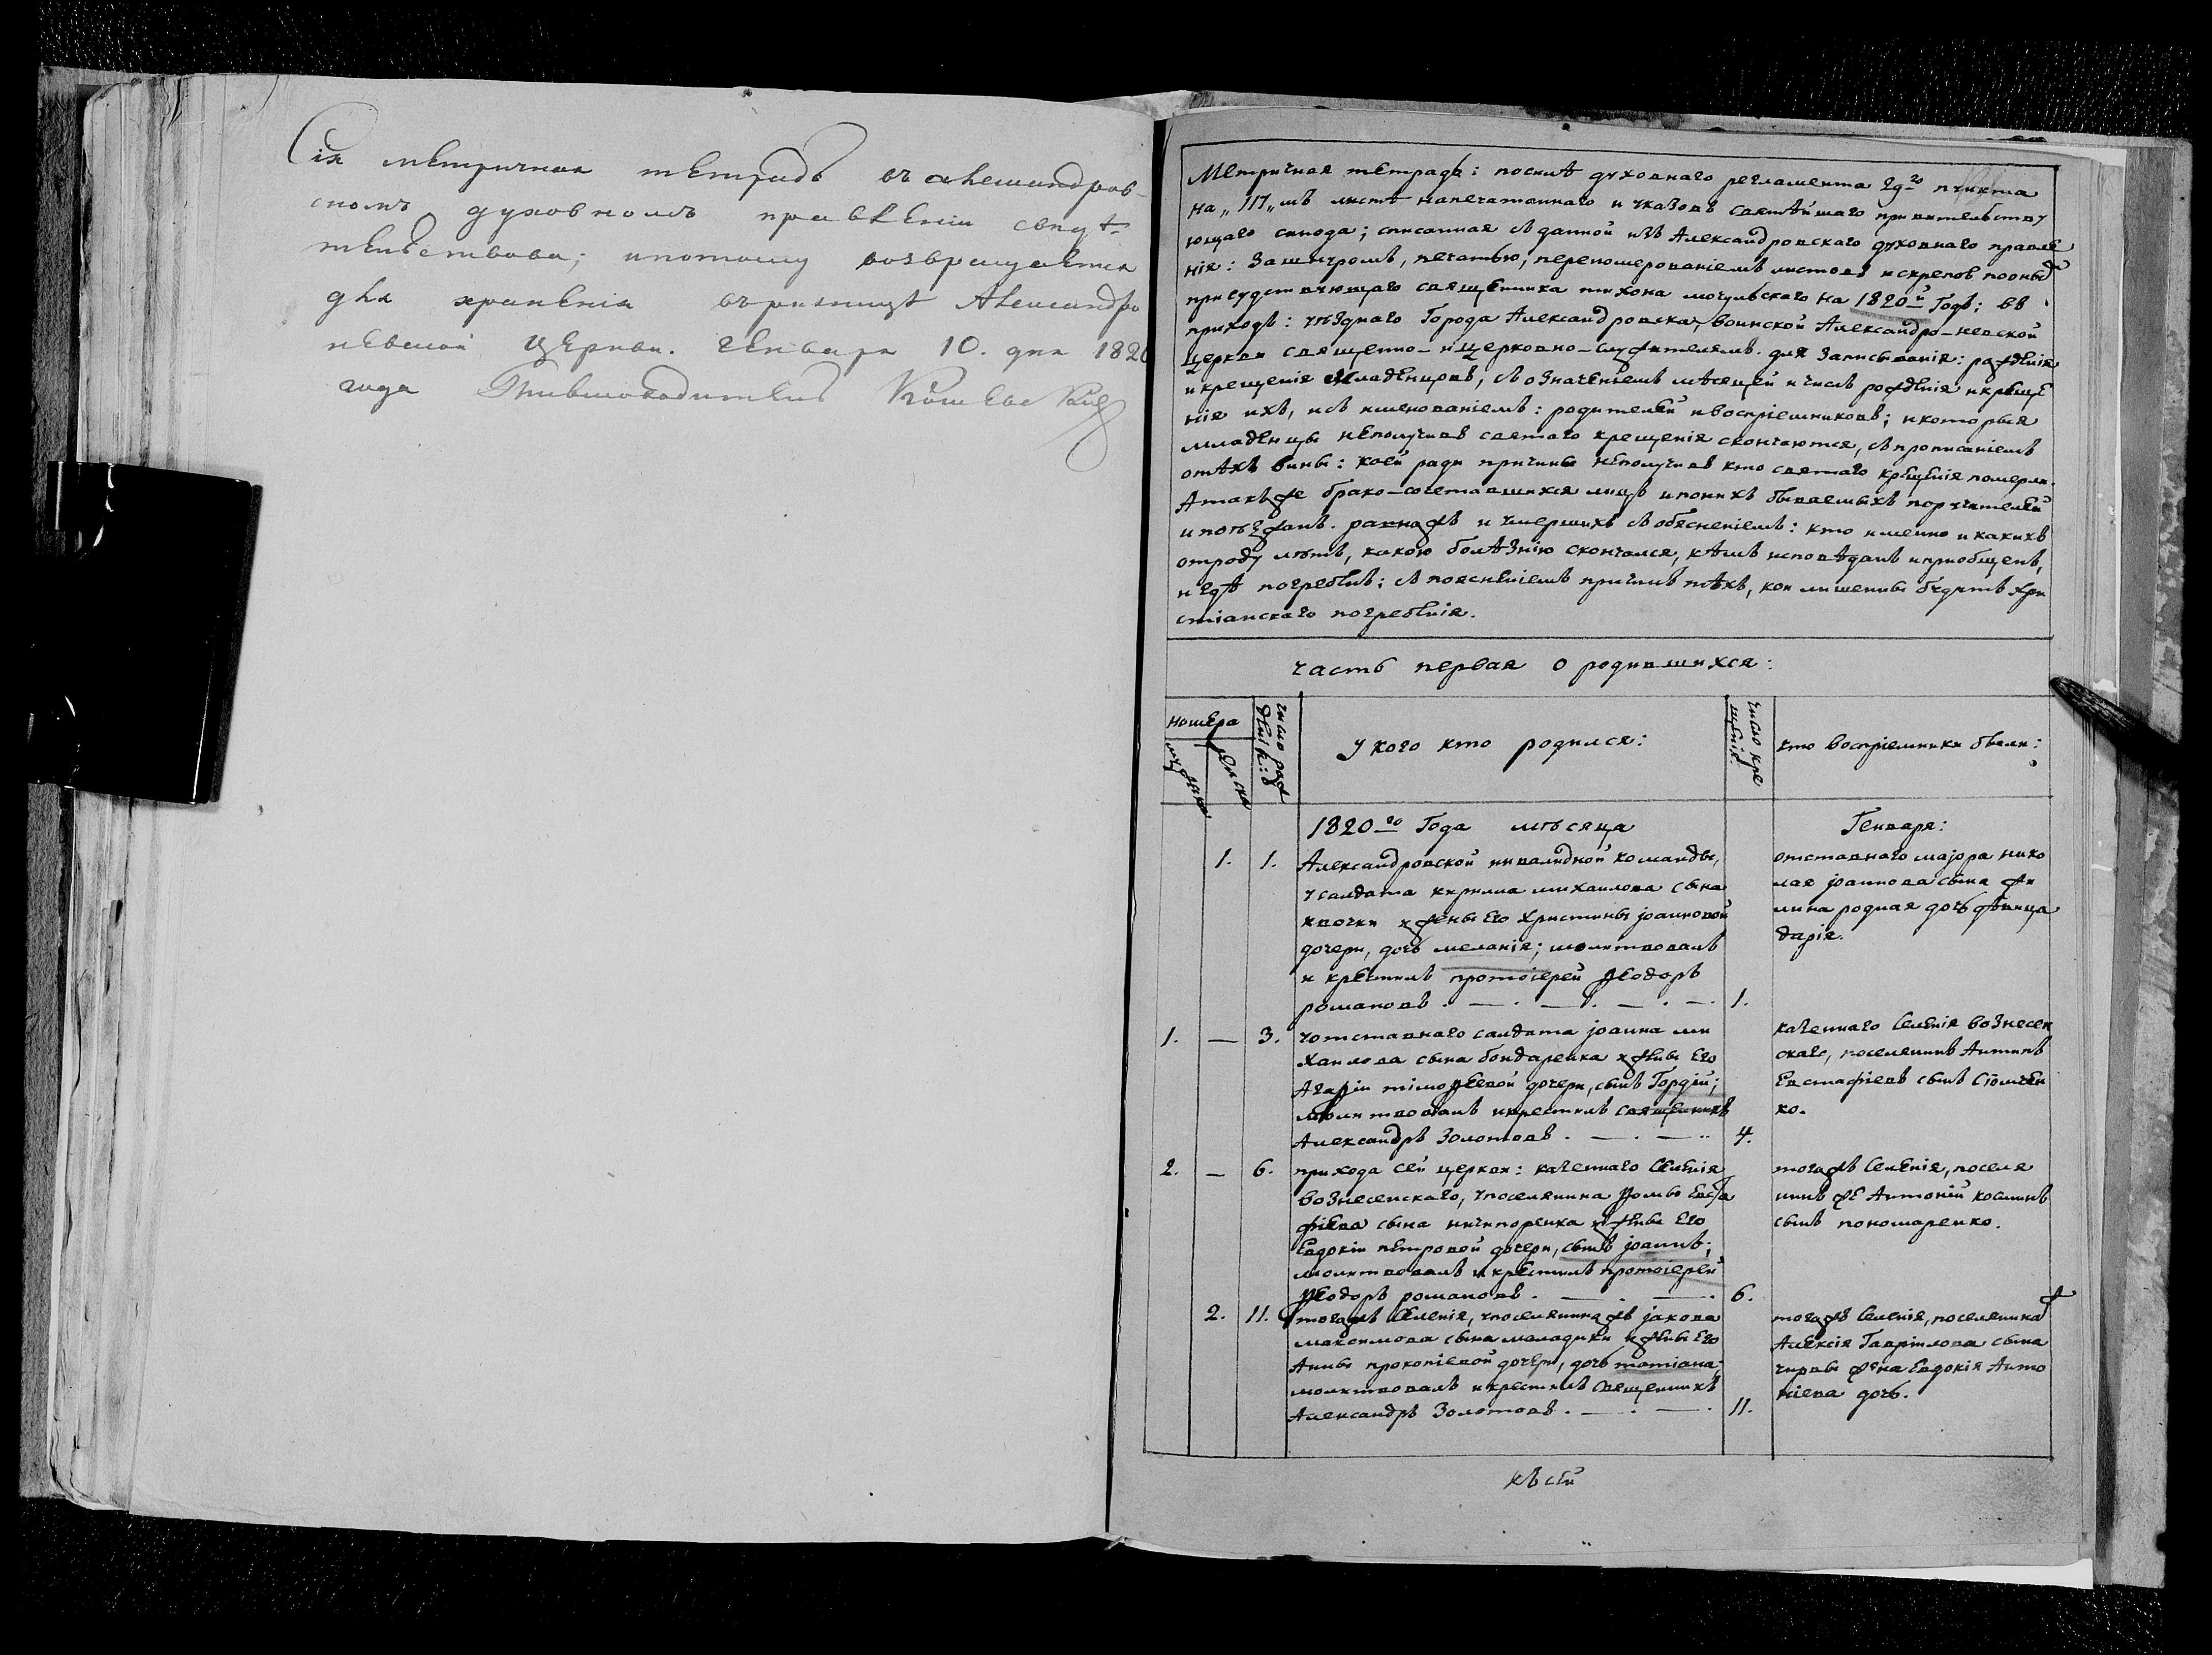 Сія метричная тетрадь въ александров-
скомъ духовномъ правленіи свидѣ-
тельствова; и потому возвращается
для храненія въ ризницѣ Александро
невской Церкви. Генваря 10. дня 1820
года
Метричная тетрадь: по силѣ духовнаго регламента 29го пункта
на „117„мъ листѣ напечатаннаго и указовъ святѣйшаго правительству
ющаго синода; списанная съ данной изъ Александровскаго духовнаго правле
нія: за шнуромъ, печатью, перенумерованіемъ листовъ и скрепов по оным
присудствующаго священника тихона могульскаго на 1820й Годъ; въ
приходѣ: уѣзднаго Города Александровска, воинской Александро-невской
Церкви священно- и церковно-служителямъ. для записыванія: рожденія
и крещенія младенцовъ, съ означеніемъ мѣсяцей и числъ рожденія и креще
нія ихъ, и съ именованіемъ: родителей и воспріемниковъ; и которыя
младенцы неполучивъ святаго крещенія скончаются, съ прописаніемъ
отѣхъ вины: коей ради причины неполучивъ кто святаго крещенія померли.
А такъже брако-сочетавшихся лицъ и по нихъ бываемыхъ поручителей
и поѣзжанъ. равно жъ и умершихъ съ обясненіемъ: кто именно и какихъ
отроду лѣтъ, какою болѣзнію скончался, кѣмъ исповѣданъ и пріобщенъ,
и гдѣ погребенъ; съ поясненіемъ причинъ тѣхъ, кои лишены будутъ хри
стіанскаго погребенія.
часть первая о родившихся:
номера
мужска
женска
число рож
денія:
У кого кто родился:
число кре
щенія:
кто воспріемники были:
1820го Года мѣсяца Генваря:
1. 1. Александровской инвалидной команды,
у салдата кирила михаилова сына
квочки и жены его Христины іоанновой
дочери, дочь меланія; молитвовалъ
и крестилъ протоіерей Ѳеодоръ
романовъ . — . — . — . — . 1.
отставнаго маіора нико
лая іоаннова сына жи
лина родная дочь дѣвица
дарія.
1. — 3. у отставнаго салдата іоанна ми
хаилова сына бондаренка и жены его
Агафіи тімоѳеевой дочери, сынъ Гордій;
молитвовалъ и крестилъ священникъ
Александръ Золотовъ . — . — .. 4.
казеннаго селенія вознесен
скаго, поселянинъ Антипъ
Евстафіевъ сынъ
ко.
2. — 6. прихода сей церкви: казеннаго Селенія
вознесенскаго, у поселянина Ѳомы Евста
фіева сына ничипоренка и жены его
Евдокіи петровой дочери, сынъ іоаннъ;
молитвовалъ и крестилъ протоіерей
Ѳеодоръ романовъ . — . — . 6.
тогожъ Селенія, поселя
нинъ же Антоній косминъ
сынъ пономаренко.
2. 11. тогожъ Селенія, у поселянина жъ іакова
максимова сына маладики и жены его
Анны прокопіевой дочери, дочь татіана;
молитвовалъ и крестилъ священникъ
Александръ Золотовъ . — . — . 11.
тогожъ Селенія, поселянина ж
Алексія Гавріилова сына
чирвы жена Евдокія Анто
ніева дочь.
къ сей